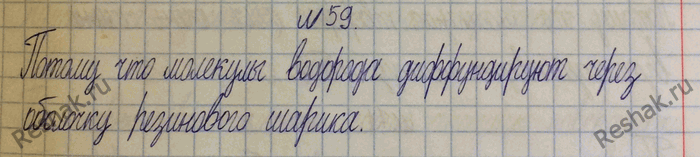 №59.
Потому что молекулы водорода диффундируют через
оболочку резинового шарика.
Reshak.ru
Reshak.ru